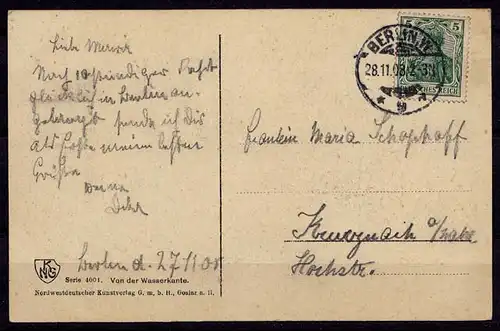 Liebe
Nach 10stündiger Fahrt
glücklich in Berlin an-
gelangt sende ich Dir
als Erste meine besten
Grüße
Berlin d. 27 11 08
KNG
Serie 4001. Von der Wasserkante.
Nordwestdeutscher Kunstverlag G. m. b. H., Goslar a. H.
BERLIN.W.
28.11.08.2-3N
* 9 *
5 5
DEUTSCHES REICH
Fräulein Maria Schopkopf
Kreuznach a/Nahe
Hochstr.